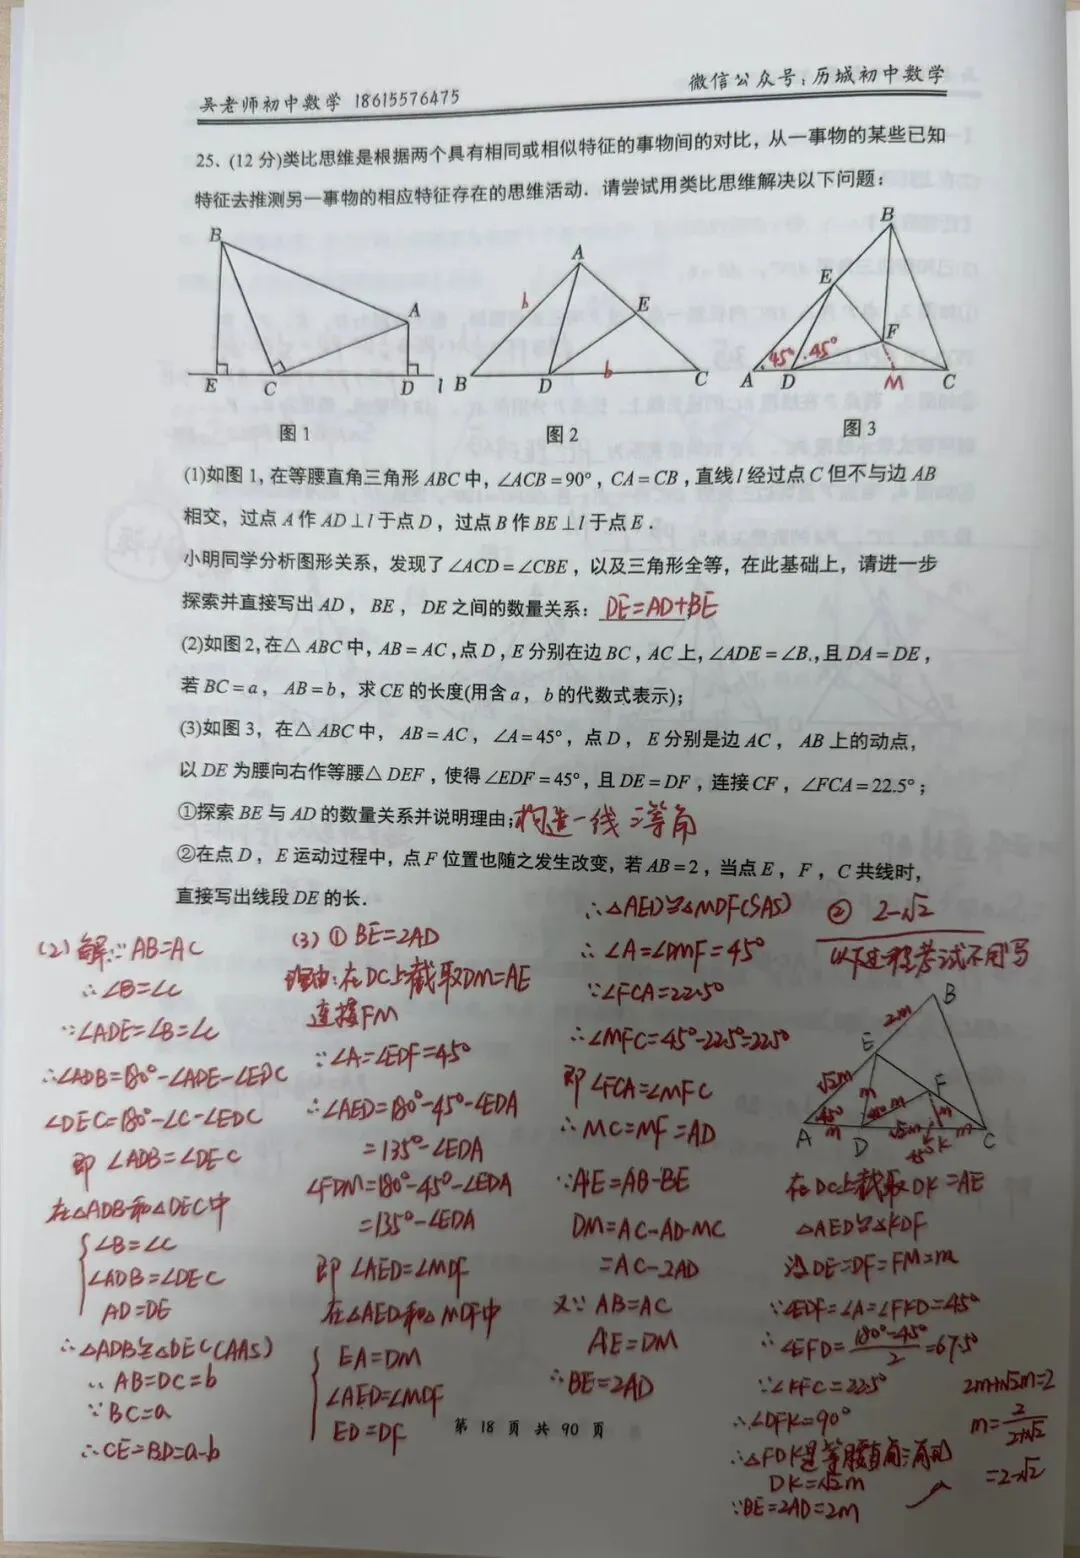 吴老师初中数学 18615576475
微信公众号:历城初中数学
25、(12分)类比思维是根据两个具有相同或相似特征的事物间的对比,从一事物的某些已知
特征去推测另一事物的相应特征存在的思维活动.请尝试用类比思维解决以下问题:
B
A
E C D l
图1
A
b
E
B D b C
图2
B
E
F
45° 45°
A D M C
图3
(1)如图1,在等腰直角三角形ABC中,∠ACB=90°,CA=CB,直线l经过点C但不与边AB
相交,过点A作AD⊥l于点D,过点B作BE⊥l于点E.
小明同学分析图形关系,发现了∠ACD=∠CBE,以及三角形全等,在此基础上,请进一步
探索并直接写出AD,BE,DE之间的数量关系: DE=AD+BE
(2)如图2,在△ABC中,AB=AC,点D,E分别在边BC,AC上,∠ADE=∠B,且DA=DE,
若BC=a,AB=b,求CE的长度(用含a,b的代数式表示);
(3)如图3,在△ABC中,AB=AC,∠A=45°,点D,E分别是边AC,AB上的动点,
以DE为腰向右作等腰△DEF,使得∠EDF=45°,且DE=DF,连接CF,∠FCA=22.5°;
①探索BE与AD的数量关系并说明理由;构造一线三等角
②在点D,E运动过程中,点F位置也随之发生改变,若AB=2,当点E,F,C共线时,
直接写出线段DE的长.
(2)解:∵AB=AC
∴∠B=∠C
∵∠ADE=∠B=∠C
∴∠ADB=180°-∠ADE-∠EDC
∠DEC=180°-∠C-∠EDC
即∠ADB=∠DEC
在△ADB和△DEC中
∠B=∠C
∠ADB=∠DEC
AD=DE
∴△ADB≌△DEC(AAS)
∴AB=DC=b
∵BC=a
∴CE=BD=a-b
(3)①BE=2AD
理由:在DC上截取DM=AE
连接FM
∵∠A=∠EDF=45°
∴∠AED=180°-45°-∠EDA
=135°-∠EDA
∠FDM=180°-45°-∠EDA
=135°-∠EDA
即∠AED=∠MDF
在△AED和△MDF中
EA=DM
∠AED=∠MDF
ED=DF
∴△AED≌△MDF(SAS)
∴∠A=∠DMF=45°
∵∠FCA=22.5°
∴∠MFC=45°-22.5°=22.5°
即∠FCA=∠MFC
∴MC=MF=AD
∵AE=AB-BE
DM=AC-AD-MC
=AC-2AD
又∵AB=AC
AE=DM
∴BE=2AD
② 2-√2
以下过程考试不用写
B
2m
E
√2m
m
F
45° 45° m m
A m D √2m 45° K m C
在DC上截取DK=AE
△AED≌△KDF
设DE=DF=FM=m
∵∠EDF=∠A=∠FKD=45°
∴∠EFD=180°-45°/2=67.5°
∵∠KFC=22.5°
∴∠DFK=90°
∴△FDK是等腰直角三角形
DK=√2m
∵BE=2AD=2m
2m+√2m=2
m=2/2+√2
=2-√2
第 18 页 共 90 页